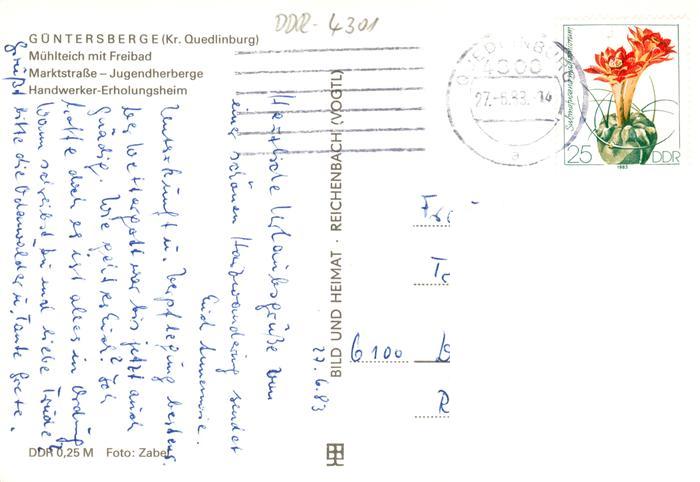 DDR - 4301
GÜNTERSBERGE (Kr. Quedlinburg)
Mühlteich mit Freibad
Marktstraße – Jugendherberge
Handwerker-Erholungsheim
27.6.83
Herzliche Urlaubsgrüße von
einer schönen Harzwanderung sendet
Euch Annemarie.
Unterkunft u. Verpflegung bestens.
der Wettergott war bis jetzt auch
gnädig. Wie geht es Euch? Ich
hoffe doch es ist alles in Ordnung
Wann schreibst Du mal liebe
Grüßt bitte die Odenwälder u. Tante Grete.
DDR 0,25 M Foto: Zabel
BILD UND HEIMAT · REICHENBACH (VOGTL)
QUEDLINBURG
4300
27.-6.83.-14
a
Sulcorebutia
25 DDR
1983
6100
R